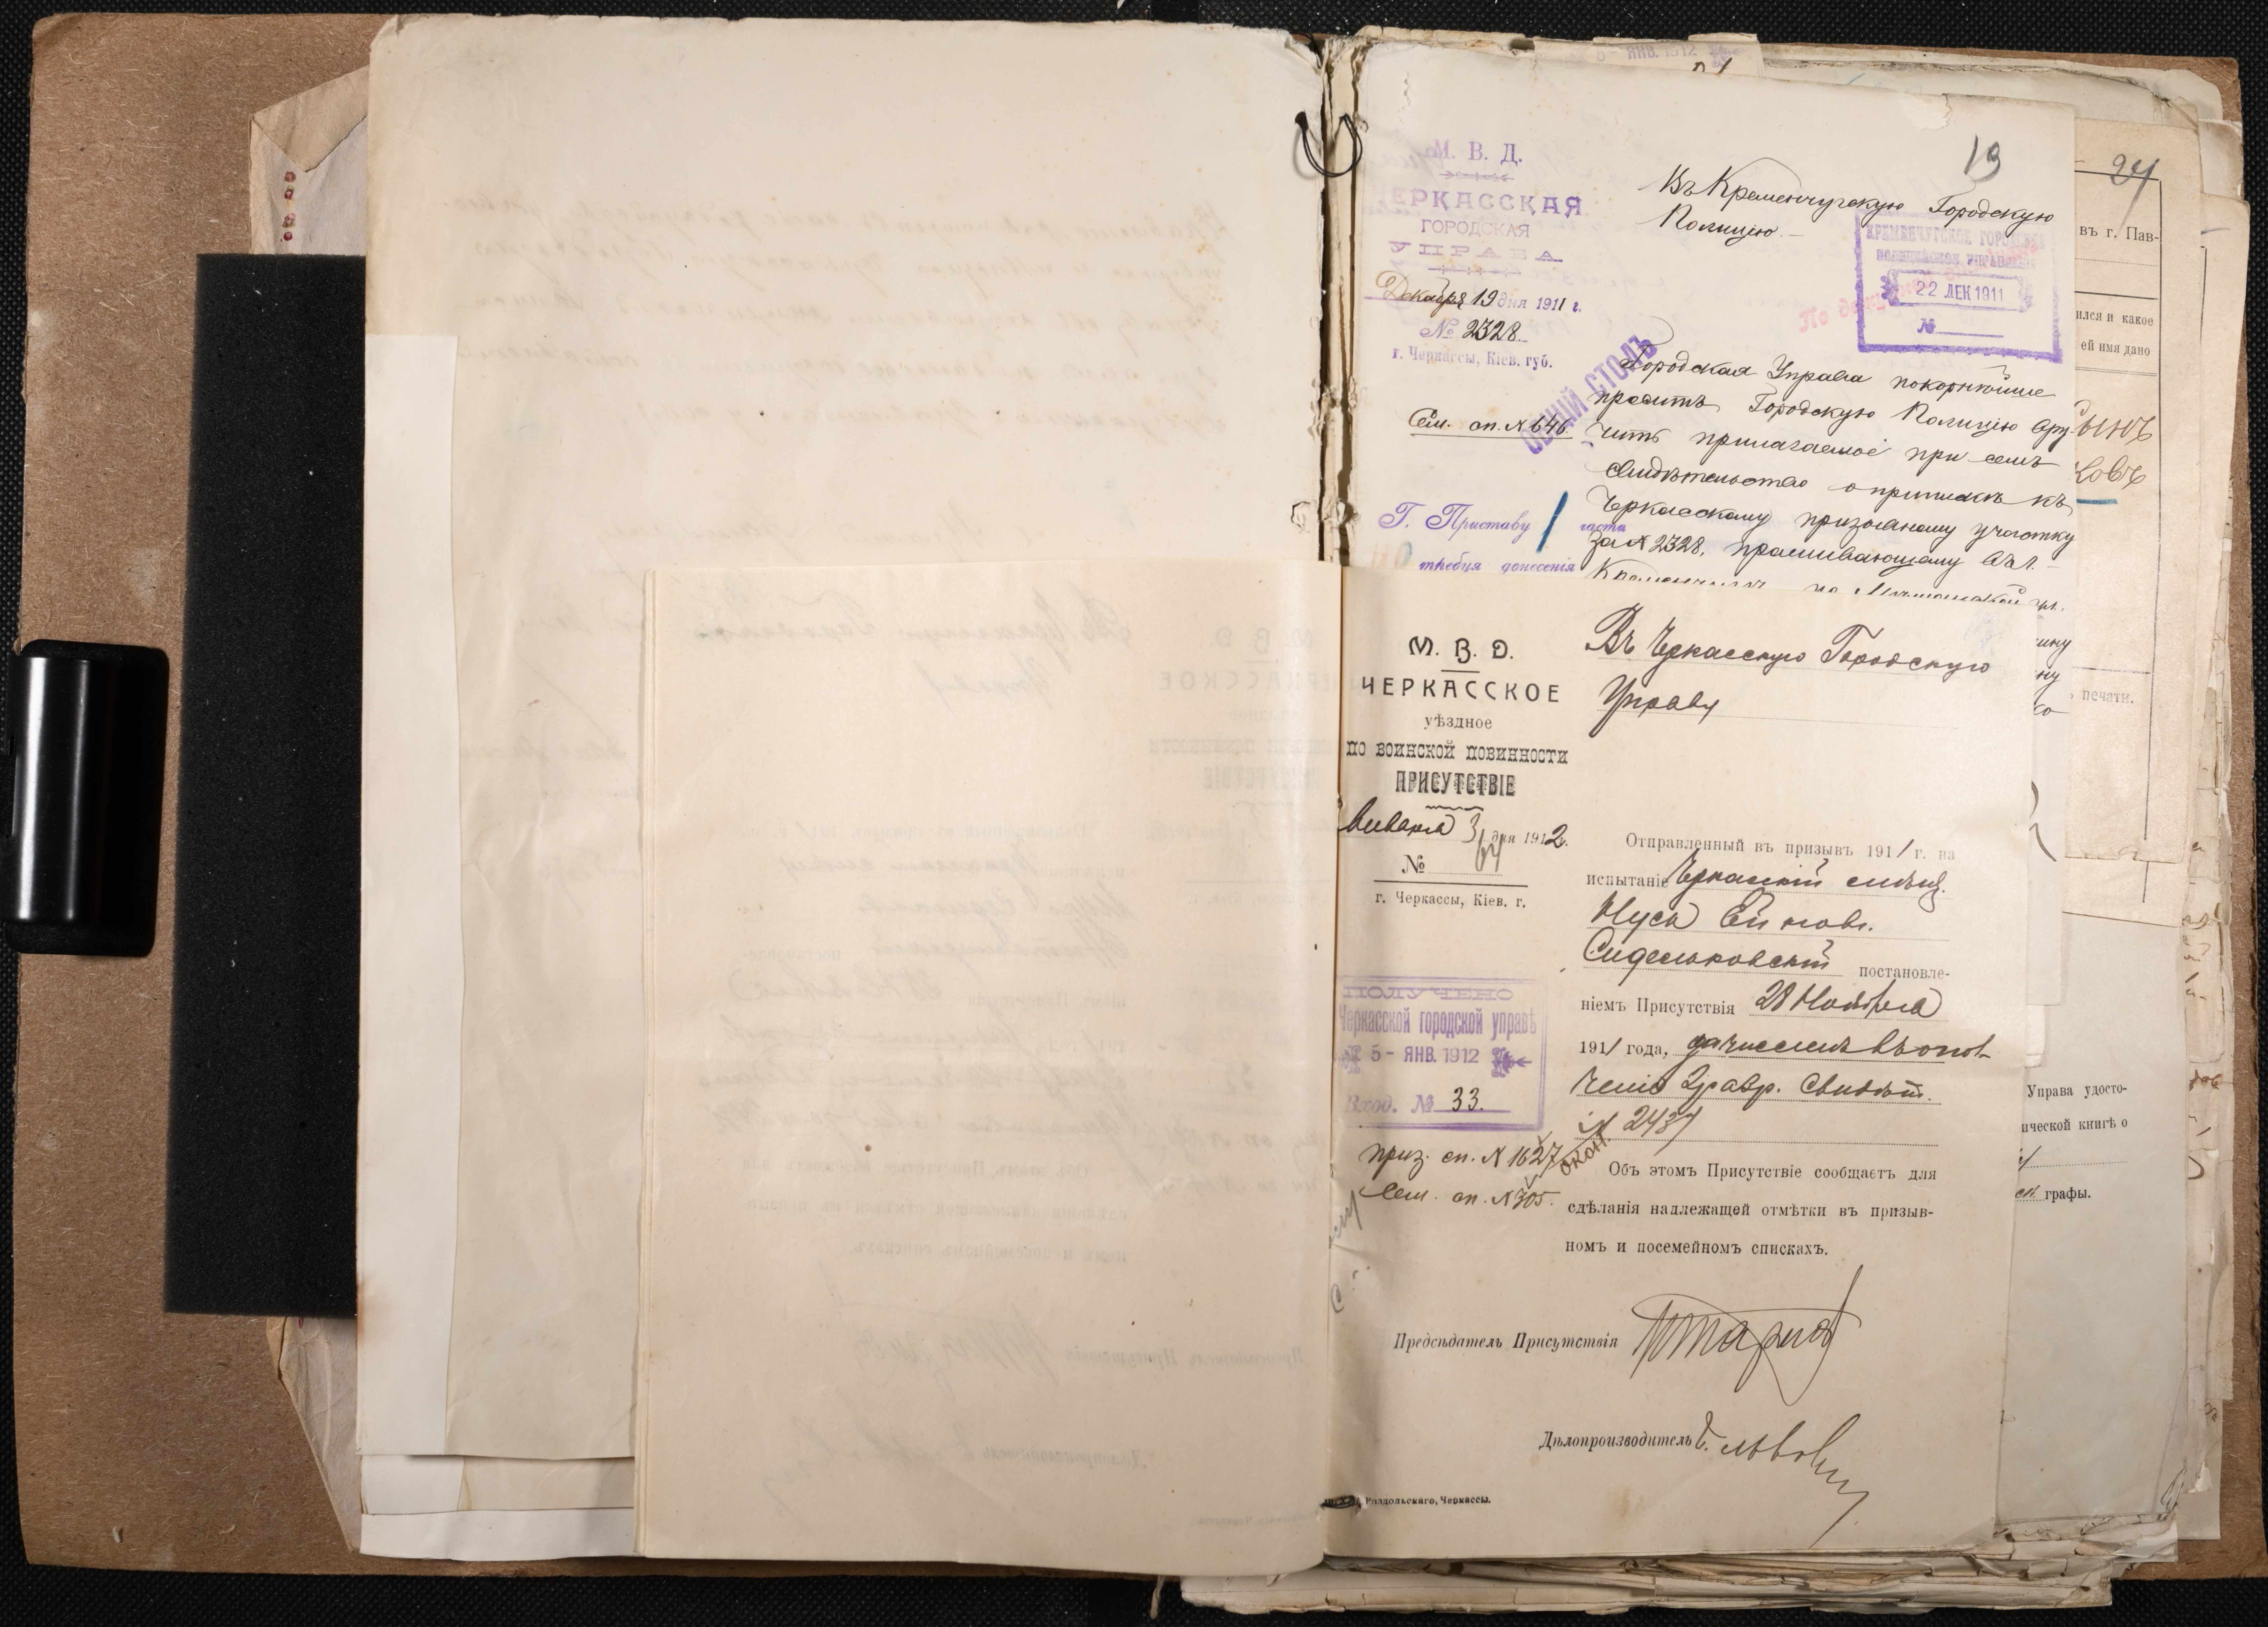 ЯНВ. 1912
19
М. В. Д.
ЧЕРКАССКАЯ
ГОРОДСКАЯ
УПРАВА
Декабря 19 дня 1911 г.
№ 2328.
г. Черкассы, Кіев. губ.
Сем. сп. № 646
ОБЩІЙ СТОЛЪ
Г. Приставу 1 части
требуя донесенія
Въ Кременчугскую Городскую
Полицію.
КРЕМЕНЧУГСКОЕ ГОРОДСКОЕ
ПОЛИЦЕЙСКОЕ УПРАВЛЕНІЕ
22 ДЕК 1911
№
Городская Управа покорнѣйше
проситъ Городскую Полицію вру-
чить прилагаемое при семъ
свидѣтельство о припискѣ къ
Черкасскому призывному участку
за № 2328, проживающему въ г.
М. В. Д.
ЧЕРКАССКОЕ
уѣздное
по воинской повинности
ПРИСУТСТВІЕ
Января 3 дня 1912.
№ 64
г. Черкассы, Кіев. г.
ПОЛУЧЕНО
Черкасской городской управѣ
5 - ЯНВ. 1912
Вход. № 33.
приз. сп. № 1627
Сем. сп. № 305.
Въ Черкасскую Городскую
Управу
Отправленный въ призывъ 1911 г. на
испытаніе Черкасскій мѣщ.
Нусъ
постановле-
ніемъ Присутствія 28 Ноября
1911 года, зачисленъ въ опол-
ченіе 2 разр. Свидѣт.
№ 2437
Объ этомъ Присутствіе сообщаетъ для
сдѣланія надлежащей отмѣтки въ призыв-
номъ и посемейномъ спискахъ.
Предсѣдатель Присутствія
Дѣлопроизводитель
Раздольскаго, Черкассы.
24
въ г. Пав-
ился и какое
ей имя дано
печати.
Управа удосто-
ической книгѣ о
графы.